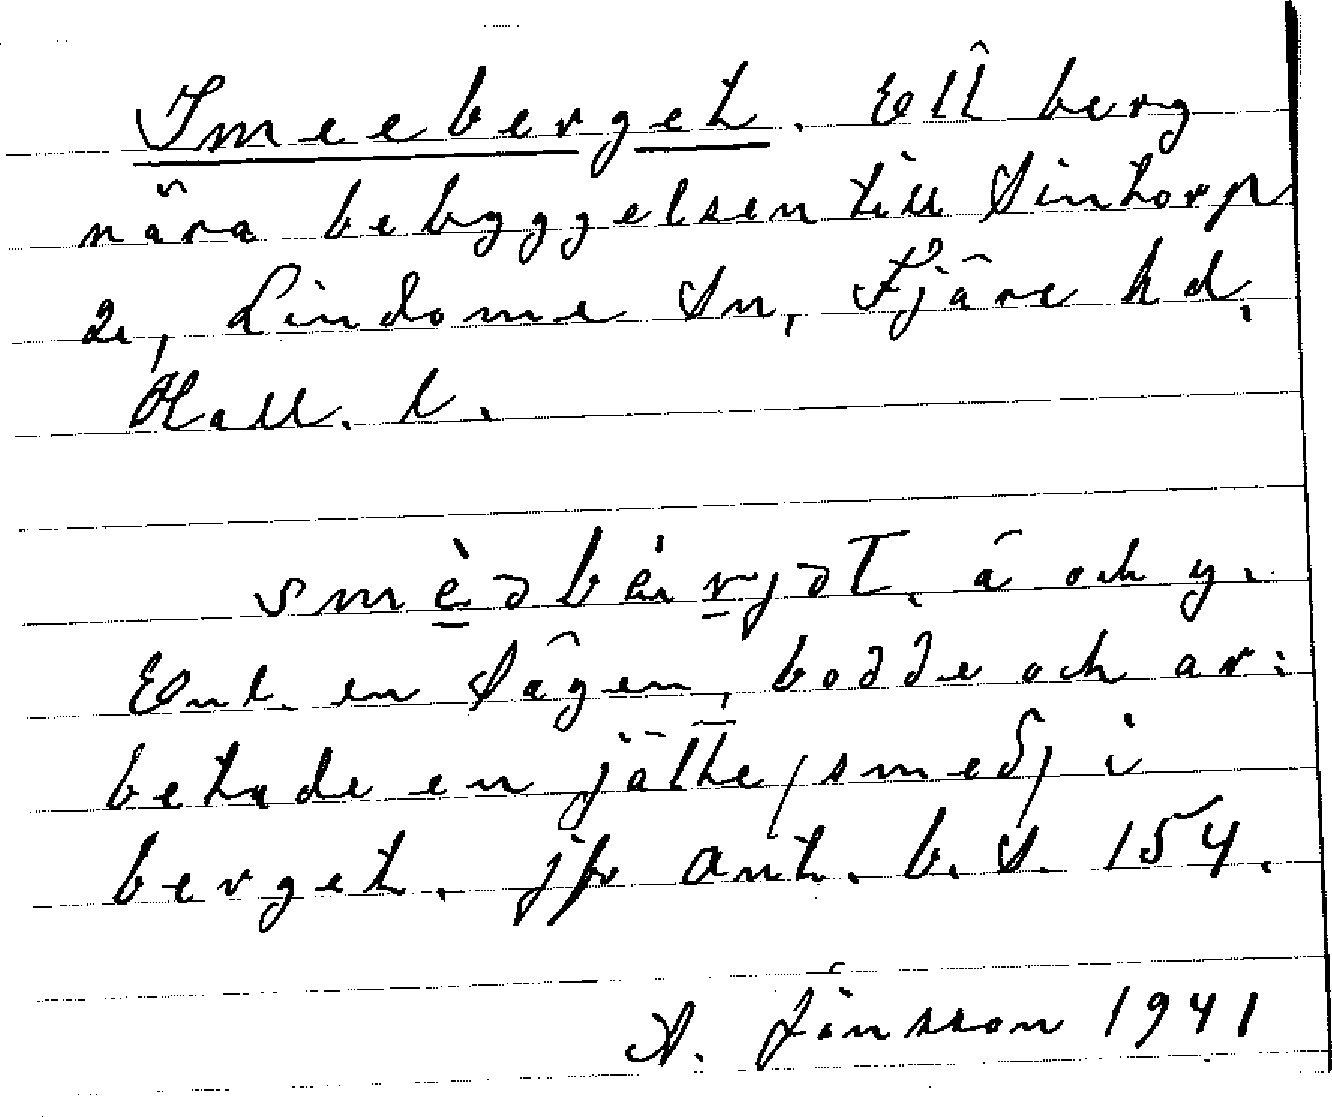 Smeeberget. Ett berg
nära bebyggelsen till Sintorp
2, Lindome Sn, Fjäre hd,
Hall. l.
smèəbèrjət. ä och y.
Enl. en sägen, bodde och ar-
betade en jätte (smed) i
berget. jfr ant. b. s. 154.
A. Jönsson 1941